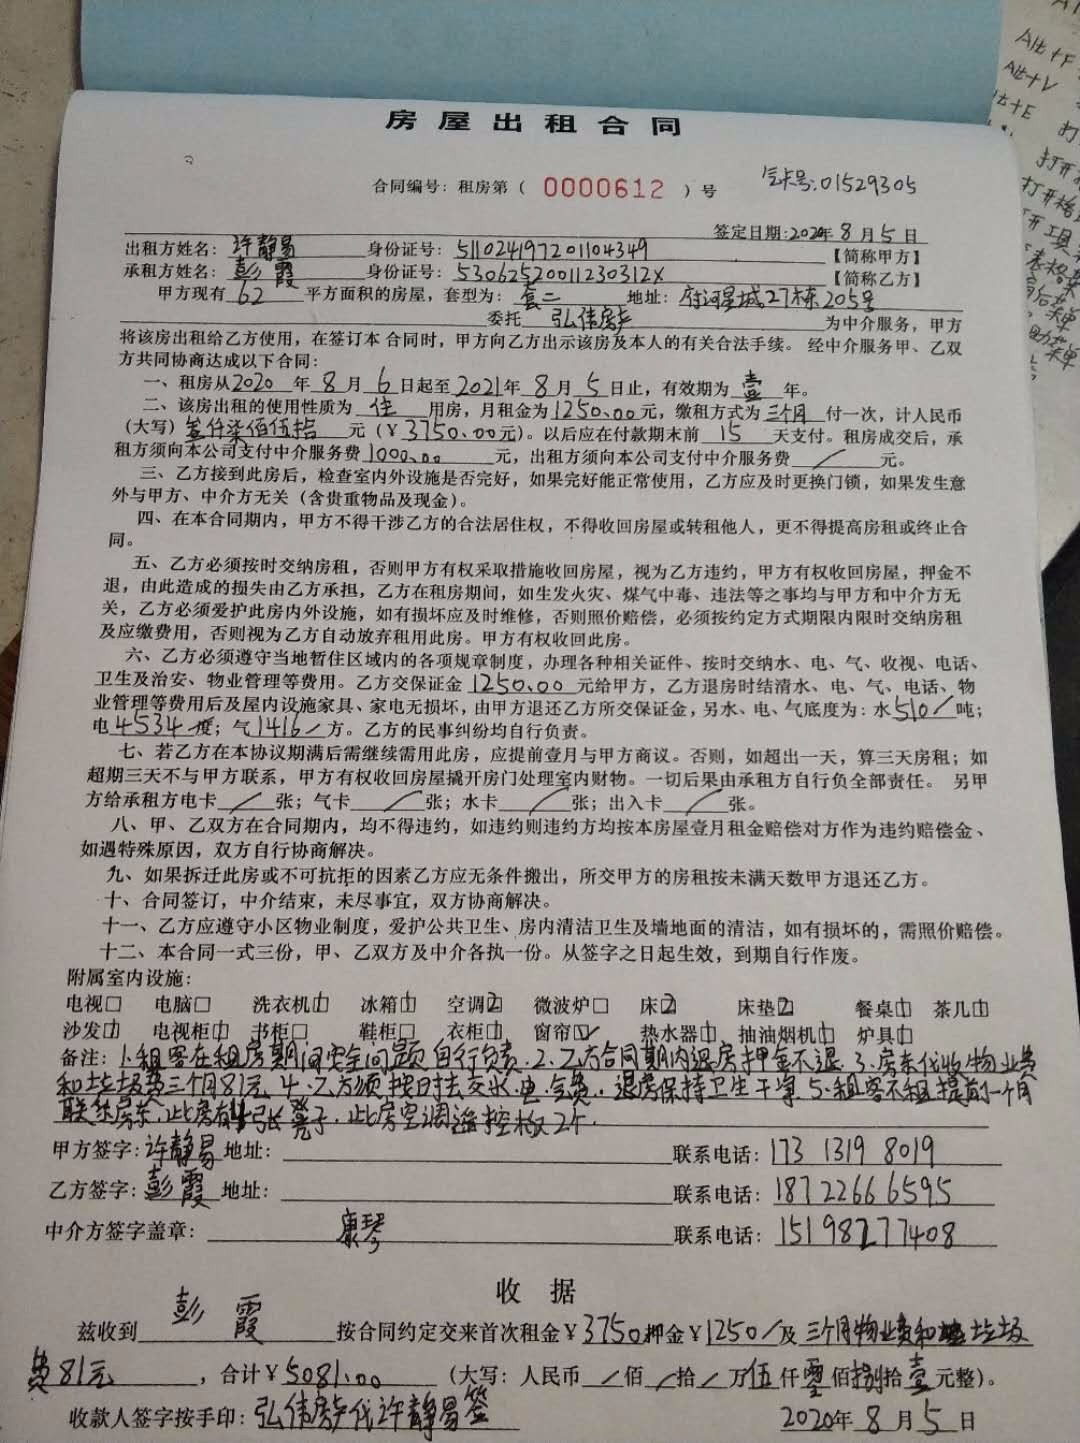 Alt+F
Alt+V
lt+E
房屋出租合同
合同编号：租房第（ 0000612 ）号
气卡号:01529305
签定日期:2020年8月5日
出租方姓名：许静易 身份证号：511024197201104349 【简称甲方】
承租方姓名：彭霞 身份证号：53062520011230312X 【简称乙方】
甲方现有 62 平方面积的房屋，套型为：套二 地址：府河星城27栋205号
委托 弘伟房产 为中介服务，甲方
将该房出租给乙方使用，在签订本 合同时，甲方向乙方出示该房及本人的有关合法手续。 经中介服务甲、乙双
方共同协商达成以下合同：
一、租房从2020年8月6日起至2021年8月5日止，有效期为 壹 年。
二、该房出租的使用性质为 住 用房，月租金为1250.00元，缴租方式为三个月付一次，计人民币
(大写) 叁仟柒佰伍拾 元（￥3750.00元）。以后应在付款期末前 15 天支付。租房成交后，承
租方须向本公司支付中介服务费 1000.00 元，出租方须向本公司支付中介服务费 / 元。
三、乙方接到此房后，检查室内外设施是否完好，如果完好能正常使用，乙方应及时更换门锁，如果发生意
外与甲方、中介方无关（含贵重物品及现金）。
四、在本合同期内，甲方不得干涉乙方的合法居住权，不得收回房屋或转租他人，更不得提高房租或终止合
同。
五、乙方必须按时交纳房租，否则甲方有权采取措施收回房屋，视为乙方违约，甲方有权收回房屋，押金不
退，由此造成的损失由乙方承担，乙方在租房期间，如生发火灾、煤气中毒、违法等之事均与甲方和中介方无
关，乙方必须爱护此房内外设施，如有损坏应及时维修，否则照价赔偿，必须按约定方式期限内限时交纳房租
及应缴费用，否则视为乙方自动放弃租用此房。甲方有权收回此房。
六、乙方必须遵守当地暂住区域内的各项规章制度，办理各种相关证件、按时交纳水、电、气、收视、电话、
卫生及治安、物业管理等费用。乙方交保证金 1250.00 元给甲方，乙方退房时结清水、电、气、电话、物
业管理等费用后及屋内设施家具、家电无损坏，由甲方退还乙方所交保证金，另水、电、气底度为：水510/吨；
电4534度；气1416/方。乙方的民事纠纷均自行负责。
七、若乙方在本协议期满后需继续需用此房，应提前壹月与甲方商议。否则，如超出一天，算三天房租；如
超期三天不与甲方联系，甲方有权收回房屋撬开房门处理室内财物。一切后果由承租方自行负全部责任。 另甲
方给承租方电卡 / 张；气卡 / 张；水卡 / 张；出入卡 / 张。
八、甲、乙双方在合同期内，均不得违约，如违约则违约方均按本房屋壹月租金赔偿对方作为违约赔偿金、
如遇特殊原因，双方自行协商解决。
九、如果拆迁此房或不可抗拒的因素乙方应无条件搬出，所交甲方的房租按未满天数甲方退还乙方。
十、合同签订，中介结束，未尽事宜，双方协商解决。
十一、乙方应遵守小区物业制度，爱护公共卫生、房内清洁卫生及墙地面的清洁，如有损坏的，需照价赔偿。
十二、本合同一式三份，甲、乙双方及中介各执一份。从签字之日起生效，到期自行作废。
附属室内设施：
电视□ 电脑□ 洗衣机1 冰箱1 空调2 微波炉□ 床2 床垫2 餐桌1 茶几1
沙发1 电视柜1 书柜□ 鞋柜□ 衣柜1 窗帘✓ 热水器1 抽油烟机1 炉具1
备注：1.租客在租房期间安全问题自行负责.2.乙方合同期内退房押金不退.3.房东代收物业费
和垃圾费三个月81元.4.乙方须按时去交水.电.气费.退房保持卫生干净.5.租客不租提前一个月
联系房东.此房有4张凳子.此房空调遥控板2个.
甲方签字：许静易 地址： 联系电话：173 1319 8019
乙方签字：彭霞 地址： 联系电话：18722666595
中介方签字盖章： 康琴 联系电话：15198277408
收 据
兹收到 彭霞 按合同约定交来首次租金￥3750押金￥1250/及三个月物业费和垃圾
费81元，合计￥5081.00 （大写：人民币 / 佰 / 拾 / 万伍仟零佰捌拾壹元整）。
收款人签字按手印：弘伟房产代许静易签 2020年8月5日